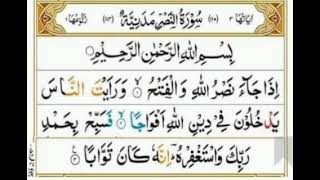 اٰيَاتُهَا ٣ (١١٠) سُوْرَةُ النَّصْرِ مَدَنِيَّةٌ
بِسْمِ اللهِ الرَّحْمٰنِ الرَّحِيْمِ
اِذَا جَآءَ نَصْرُ اللهِ وَالْفَتْحُ ۙ وَرَاَيْتَ النَّاسَ
يَدْخُلُوْنَ فِيْ دِيْنِ اللهِ اَفْوَاجًا ۙ فَسَبِّحْ بِحَمْدِ
رَبِّكَ وَاسْتَغْفِرْهُ ؔ اِنَّهٗ كَانَ تَوَّابًا